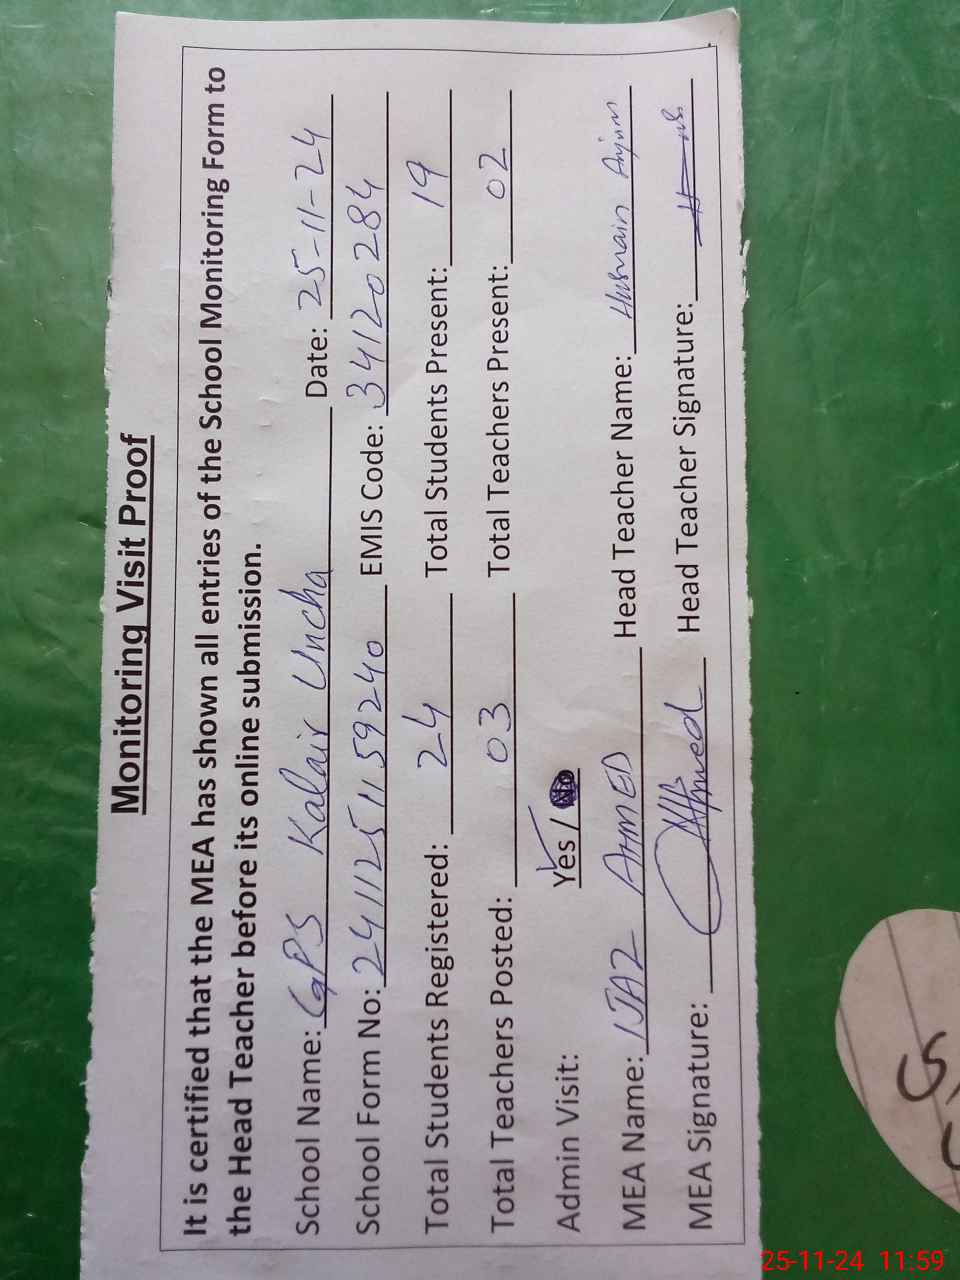 Monitoring Visit Proof
It is certified that the MEA has shown all entries of the School Monitoring Form to
the Head Teacher before its online submission.
School Name: GPS Kalair Uncha Date: 25-11-24
School Form No: 2411251159240 EMIS Code: 34120284
Total Students Registered: 24 Total Students Present: 19
Total Teachers Posted: 03 Total Teachers Present: 02
Admin Visit: Yes /
MEA Name: IJAZ AHMED Head Teacher Name: Husnain Anjum
MEA Signature: Ahmed Head Teacher Signature:
25-11-24 11:59